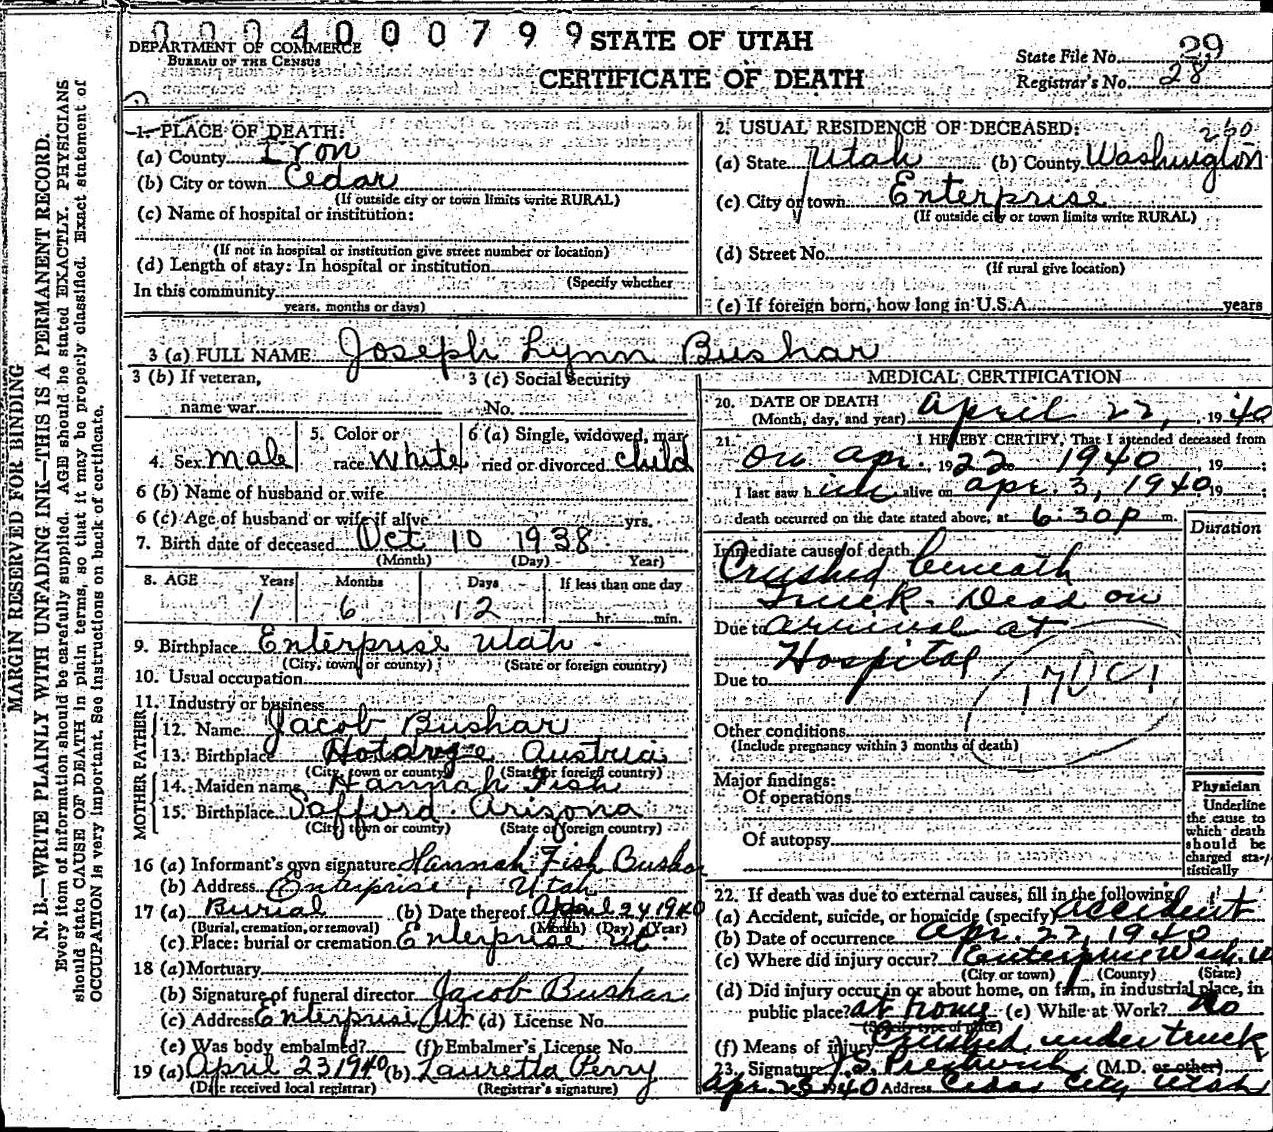 0004000799
DEPARTMENT OF COMMERCE
BUREAU OF THE CENSUS
STATE OF UTAH
CERTIFICATE OF DEATH
State File No. 29
Registrar's No. 28
MARGIN RESERVED FOR BINDING
N. B.—WRITE PLAINLY WITH UNFADING INK—THIS IS A PERMANENT RECORD.
Every item of information should be carefully supplied. AGE should be stated EXACTLY. PHYSICIANS
should state CAUSE OF DEATH in plain terms, so that it may be properly classified. Exact statement of
OCCUPATION is very important. See instructions on back of certificate.
1. PLACE OF DEATH:
(a) County Iron
(b) City or town Cedar
(If outside city or town limits write RURAL)
(c) Name of hospital or institution:
(If not in hospital or institution give street number or location)
(d) Length of stay: In hospital or institution
(Specify whether
In this community
years, months or days)
2. USUAL RESIDENCE OF DECEASED: 260
(a) State Utah (b) County Washington
(c) City or town Enterprise
(If outside city or town limits write RURAL)
(d) Street No.
(If rural give location)
(e) If foreign born, how long in U.S.A. years
3 (a) FULL NAME Joseph Lynn Bushar
3 (b) If veteran, 3 (c) Social Security
name war No.
4. Sex male 5. Color or race White 6 (a) Single, widowed, married or divorced child
6 (b) Name of husband or wife
6 (c) Age of husband or wife if alive yrs.
7. Birth date of deceased Oct 10 1938
(Month) (Day) Year)
8. AGE Years Months Days If less than one day
1 6 12 hr. min.
9. Birthplace Enterprise Utah
(City, town, or county) (State or foreign country)
10. Usual occupation
11. Industry or business
FATHER
12. Name Jacob Bushar
13. Birthplace Austria
(City, town or county) (State or foreign country)
MOTHER
14. Maiden name Hannah Fish
15. Birthplace Safford Arizona
(City, town or county) (State or foreign country)
16 (a) Informant's own signature Hannah Fish Bushar
(b) Address Enterprise, Utah
17 (a) Burial (b) Date thereof April 24 1940
(Burial, cremation, or removal) (Month) (Day) (Year)
(c) Place: burial or cremation Enterprise Ut.
18 (a) Mortuary
(b) Signature of funeral director Jacob Bushar
(c) Address Enterprise Ut. (d) License No.
(e) Was body embalmed? (f) Embalmer's License No.
19 (a) April 23 1940 (b) Lauretta Perry
(Date received local registrar) (Registrar's signature)
MEDICAL CERTIFICATION
20. DATE OF DEATH
(Month, day, and year) April 22, 1940
21. I HEREBY CERTIFY, That I attended deceased from
on Apr. 1922 1940, 19 ;
I last saw him alive on Apr. 3, 1940 19
death occurred on the date stated above, at 6:30 P m.
Duration
Immediate cause of death
Crushed beneath
Truck. Dead on
Due to arrival at
Hospital
Due to
Other conditions
(Include pregnancy within 3 months of death)
Major findings:
Of operations
Of autopsy
Physician
Underline
the cause to
which death
should be
charged sta-
tistically
22. If death was due to external causes, fill in the following:
(a) Accident, suicide, or homicide (specify) Accident
(b) Date of occurrence Apr. 22, 1940
(c) Where did injury occur? Enterprise Wash. U
(City or town) (County) (State)
(d) Did injury occur in or about home, on farm, in industrial place, in
public place? at home (e) While at Work? No
(Specify type of place)
(f) Means of injury Crushed under truck
23. Signature Prestwich (M.D. or other)
Apr. 23 1940 Address Cedar City, Utah